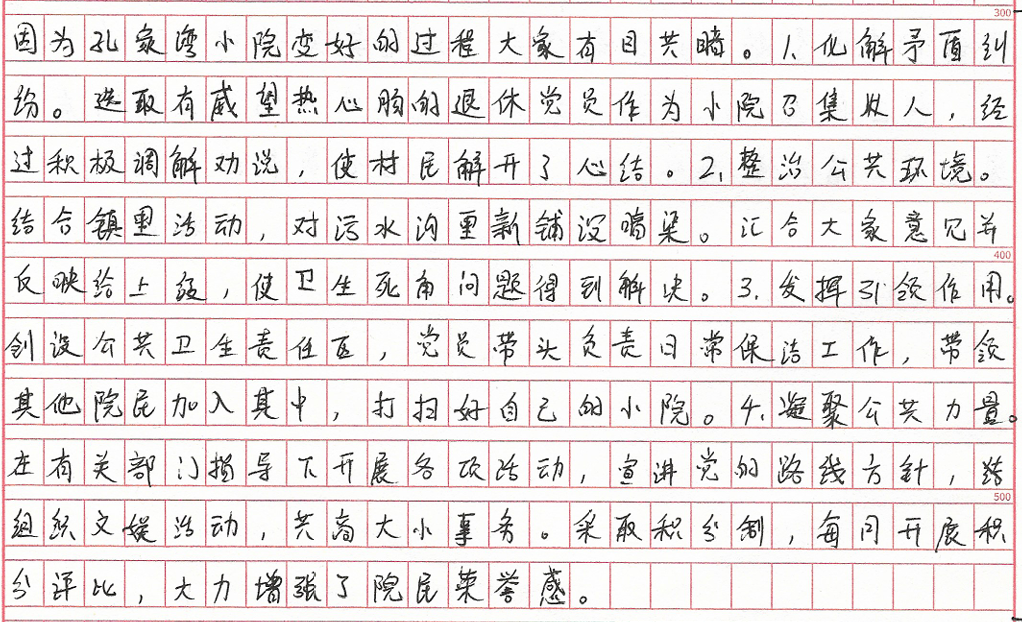 300
因为孔家湾小院变好的过程大家有目共睹。1.化解矛盾纠
纷。选取有威望热心肠的退休党员作为小院召集收人，经
过积极调解劝说，使村民解开了心结。2.整治公共环境。
结合镇里活动，对污水沟重新铺设暗渠。汇合大家意见并
400
反映给上级，使卫生死角问题得到解决。3.发挥引领作用。
创设公共卫生责任区，党员带头负责日常保洁工作，带领
其他院民加入其中，打扫好自己的小院。4.凝聚公共力量。
在有关部门指导下开展各项活动，宣讲党的路线方针，
500
组织文娱活动，共商大小事务。采取积分制，每月开展积
分评比，大力增强了院民荣誉感。